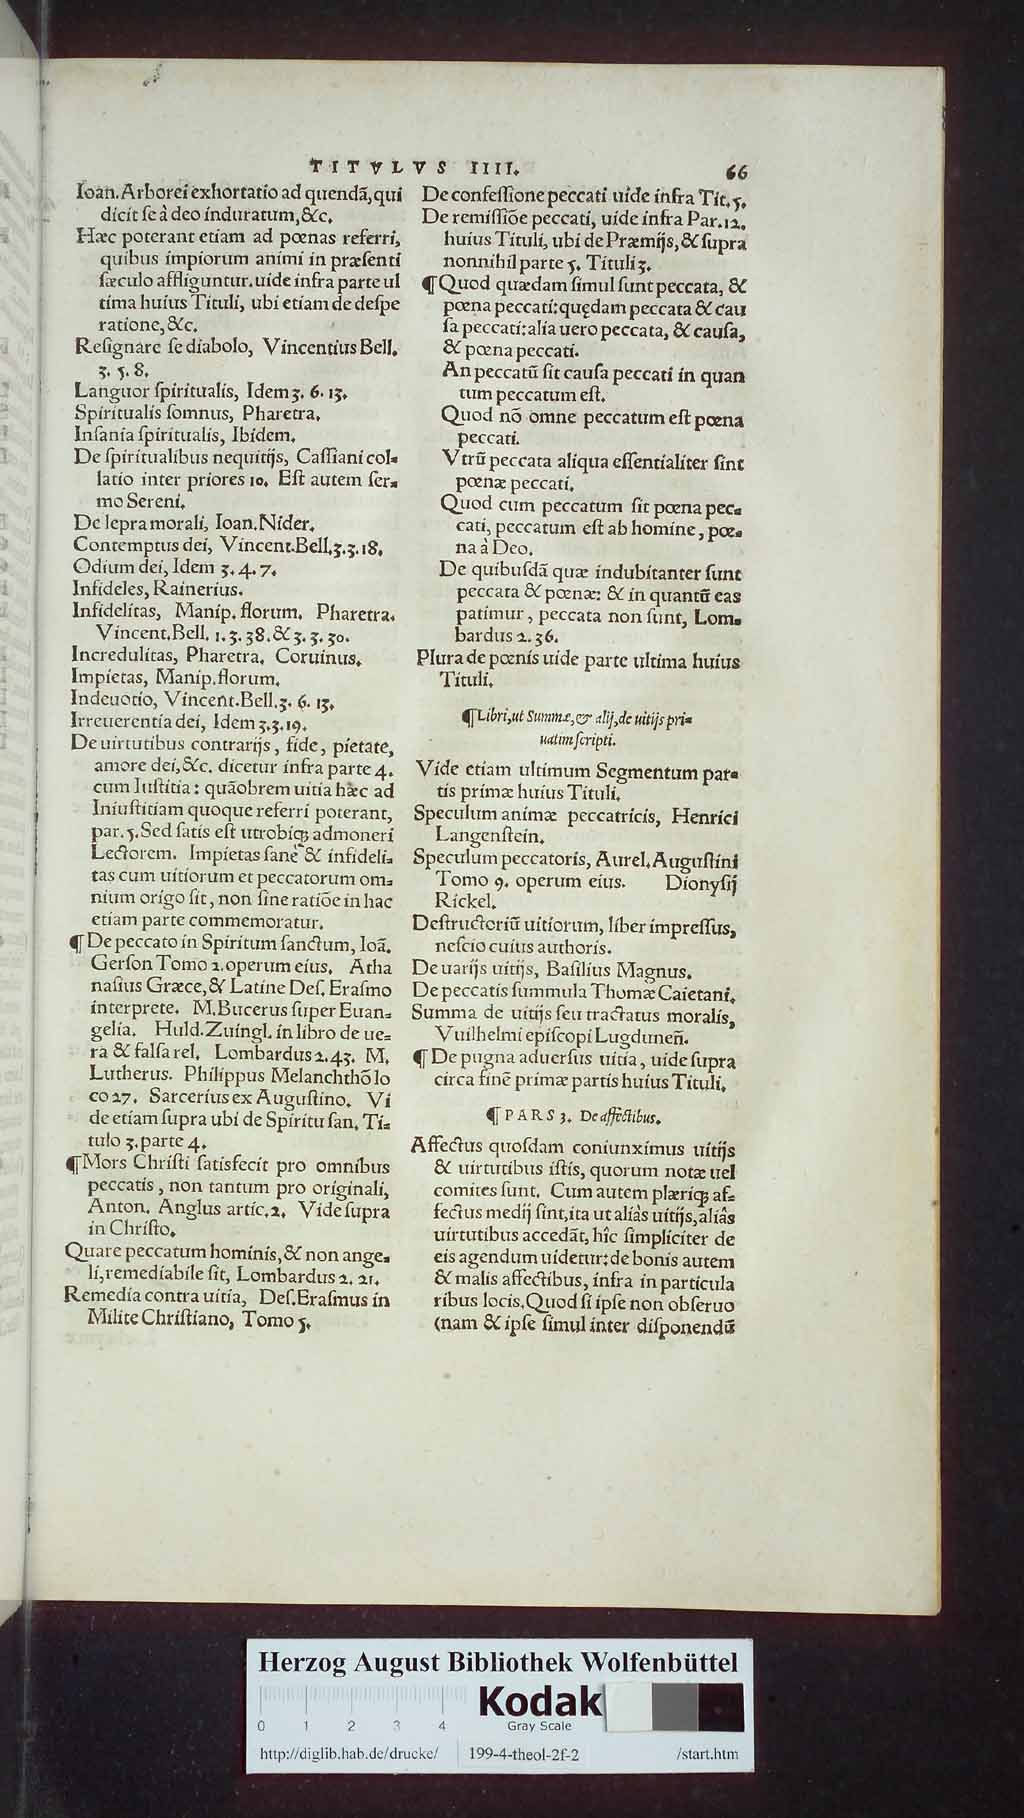 TITVLVS IIII. 66
Ioan. Arborei exhortatio ad quendã, qui
dicit se à deo induratum, &c.
Hæc poterant etiam ad pœnas referri,
quibus impiorum animi in præsenti
sæculo affliguntur. uide infra parte ul
tima huius Tituli, ubi etiam de despe
ratione, &c.
Resignare se diabolo, Vincentius Bell.
3. 5. 8.
Languor spiritualis, Idem 3. 6. 13.
Spiritualis somnus, Pharetra.
Insania spiritualis, Ibidem.
De spiritualibus nequitijs, Cassiani col-
latio inter priores 10. Est autem ser-
mo Sereni.
De lepra morali, Ioan. Nider.
Contemptus dei, Vincent. Bell. 3. 3. 18.
Odium dei, Idem 3. 4. 7.
Infideles, Rainerius.
Infidelitas, Manip. florum. Pharetra.
Vincent. Bell. 1. 3. 38. & 3. 3. 30.
Incredulitas, Pharetra. Coruinus.
Impietas, Manip. florum.
Indeuotio, Vincent. Bell. 3. 6. 13.
Irreuerentia dei, Idem 3. 3. 19.
De uirtutibus contrarijs, fide, pietate,
amore dei, &c. dicetur infra parte 4.
cum Iustitia: quãobrem uitia hæc ad
Iniustitiam quoque referri poterant,
par. 5. Sed satis est utrobiq; admoneri
Lectorem. Impietas sanè & infideli-
tas cum uitiorum et peccatorum om-
nium origo sit, non sine ratiõe in hac
etiam parte commemoratur.
¶ De peccato in Spiritum sanctum, Ioã.
Gerson Tomo 2. operum eius. Atha
nasius Græce, & Latine Des. Erasmo
interprete. M. Bucerus super Euan-
gelia. Huld. Zuingl. in libro de ue-
ra & falsa rel. Lombardus 2. 43. M.
Lutherus. Philippus Melanchthõ lo
co 27. Sarcerius ex Augustino. Vi
de etiam supra ubi de Spiritu san. Ti-
tulo 3. parte 4.
¶ Mors Christi satisfecit pro omnibus
peccatis, non tantum pro originali,
Anton. Anglus artic. 2. Vide supra
in Christo.
Quare peccatum hominis, & non ange-
li, remediabile sit, Lombardus 2. 21.
Remedia contra uitia, Des. Erasmus in
Milite Christiano, Tomo 5.
De confessione peccati uide infra Tit. 5.
De remissiõe peccati, uide infra Par. 12.
huius Tituli, ubi de Præmijs, & supra
nonnihil parte 5. Tituli 3.
¶ Quod quædam simul sunt peccata, &
pœna peccati: quędam peccata & cau
sa peccati: alia uero peccata, & causa,
& pœna peccati.
An peccatũ sit causa peccati in quan
tum peccatum est.
Quod nõ omne peccatum est pœna
peccati.
Vtrũ peccata aliqua essentialiter sint
pœnæ peccati.
Quod cum peccatum sit pœna pec-
cati, peccatum est ab homine, pœ-
na à Deo.
De quibusdã quæ indubitanter sunt
peccata & pœnæ: & in quantũ eas
patimur, peccata non sunt, Lom-
bardus 2. 36.
Plura de pœnis uide parte ultima huius
Tituli.
¶ Libri, ut Summæ, & alij, de uitijs pri-
uatim scripti.
Vide etiam ultimum Segmentum par-
tis primæ huius Tituli.
Speculum animæ peccatricis, Henrici
Langenstein.
Speculum peccatoris, Aurel. Augustini
Tomo 9. operum eius. Dionysij
Rickel.
Destructoriũ uitiorum, liber impressus,
nescio cuius authoris.
De uarijs uitijs, Basilius Magnus.
De peccatis summula Thomæ Caietani.
Summa de uitijs seu tractatus moralis,
Vuilhelmi episcopi Lugduneñ.
¶ De pugna aduersus uitia, uide supra
circa finẽ primæ partis huius Tituli.
¶ PARS 3. De affectibus.
Affectus quosdam coniunximus uitijs
& uirtutibus istis, quorum notæ uel
comites sunt. Cum autem plæriq; af-
fectus medij sint, ita ut aliâs uitijs, aliâs
uirtutibus accedãt, hîc simpliciter de
eis agendum uidetur: de bonis autem
& malis affectibus, infra in particula
ribus locis. Quod si ipse non obseruo
(nam & ipse simul inter disponendũ
Herzog August Bibliothek Wolfenbüttel
0 1 2 3 4
Kodak
Gray Scale
http://diglib.hab.de/drucke/ 199-4-theol-2f-2 /start.htm